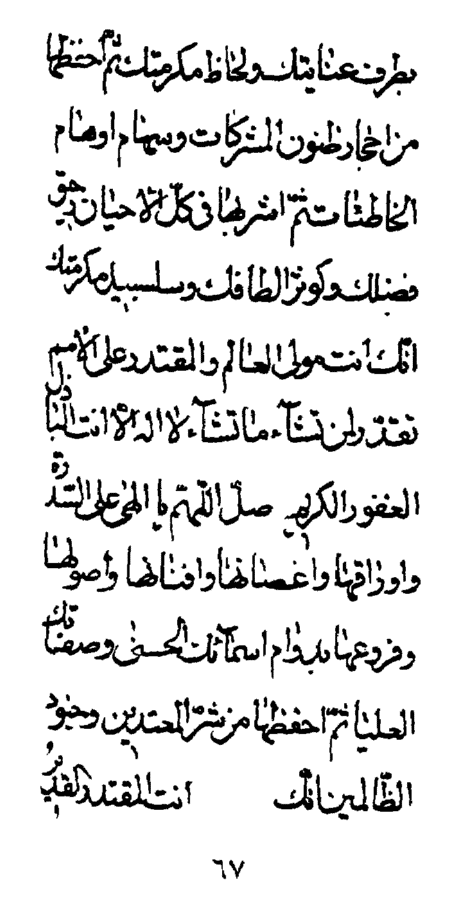 بطرف عنايتك ولحاظ مكرمتك ثمّ احفظها
من احجار ظنون المشركات وسهام اوهام
الخاطئات ثمّ اشربها فى كلّ الاحيان رحيق
فضلك وكوثر الطافك وسلسبيل مكرمتك
انّك انت مولى العالم والمقتدر على الامم
تقدّر لمن تشآء ما تشآء لا اله الّا انت الباذل
الغفور الكريم صلّ اللّهمّ يا الهى على السّدرة
واوراقها واغصانها وافنانها واصولها
وفروعها بدوام اسمآئك الحسنى وصفاتك
العليا ثمّ احفظها من شرّ المعتدين وجنود
الظّالمين انّك انت المقتدر القدير
٦٧